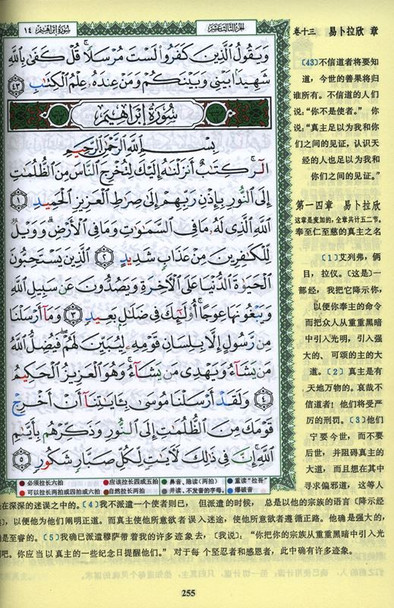 الجزء الثالث عشر
سورة إبراهيم ١٤
وَيَقُولُ الَّذِينَ كَفَرُوا لَسْتَ مُرْسَلًا قُلْ كَفَىٰ بِاللَّهِ
شَهِيدًا بَيْنِي وَبَيْنَكُمْ وَمَنْ عِندَهُ عِلْمُ الْكِتَابِ ٤٣
سُورَةُ إِبْرَاهِيمَ
بِسْمِ اللَّهِ الرَّحْمَٰنِ الرَّحِيمِ
الر كِتَابٌ أَنزَلْنَاهُ إِلَيْكَ لِتُخْرِجَ النَّاسَ مِنَ الظُّلُمَاتِ
إِلَى النُّورِ بِإِذْنِ رَبِّهِمْ إِلَىٰ صِرَاطِ الْعَزِيزِ الْحَمِيدِ ١
اللَّهِ الَّذِي لَهُ مَا فِي السَّمَاوَاتِ وَمَا فِي الْأَرْضِ وَوَيْلٌ
لِّلْكَافِرِينَ مِنْ عَذَابٍ شَدِيدٍ ٢ الَّذِينَ يَسْتَحِبُّونَ
الْحَيَاةَ الدُّنْيَا عَلَى الْآخِرَةِ وَيَصُدُّونَ عَن سَبِيلِ اللَّهِ
وَيَبْغُونَهَا عِوَجًا أُولَٰئِكَ فِي ضَلَالٍ بَعِيدٍ ٣ وَمَا أَرْسَلْنَا
مِن رَّسُولٍ إِلَّا بِلِسَانِ قَوْمِهِ لِيُبَيِّنَ لَهُمْ فَيُضِلُّ اللَّهُ
مَن يَشَاءُ وَيَهْدِي مَن يَشَاءُ وَهُوَ الْعَزِيزُ الْحَكِيمُ
٤ وَلَقَدْ أَرْسَلْنَا مُوسَىٰ بِآيَاتِنَا أَنْ أَخْرِجْ
قَوْمَكَ مِنَ الظُّلُمَاتِ إِلَى النُّورِ وَذَكِّرْهُم بِأَيَّامِ
اللَّهِ إِنَّ فِي ذَٰلِكَ لَآيَاتٍ لِّكُلِّ صَبَّارٍ شَكُورٍ ٥
卷十三 易卜拉欣 章
(43)不信道者将要知
道，今世的善果将归
谁所有。不信道的人们
说：“你不是使者。” 你
说：“真主足以为我和你
们之间的见证，认识天
经的人也足以为我和
你们之间的见证。”
第一四章 易卜拉欣
这章是麦加的，全章共计五二节。
奉至仁至慈的真主之名
(1)艾列弗，俩
目，拉仪。（这是）一
部经，我把它降示你，
以便你奉主的命令
而把众人从重重黑暗
中引入光明，引入强
大的、可颂的主的大
道。(2) 真主是有
天地万物的。哀哉不
信道者！他们将受严
厉的刑罚。(3)他们
宁要今世，而不要
后世；并阻碍真主的
大道，而且想在其中
寻求偏邪道，这等人
是在深深的迷误之中的。(4)我不派遣一个使者则已，但派遣的时候，总是以他的宗族的语言（降示经
），以便他为他们阐明正道。而真主使他所意欲者误入迷途，使他所意欲者遵循正路。他确是强大的，
(5)我确已派遣穆萨带着我的许多迹象去，（我说）：“你把你的宗族从重重黑暗中引入光
明吧。你应当以真主的一些纪念日提醒他们。” 对于每个坚忍者和感恩者，此中确有许多迹象。
必须拉长六拍 应该拉长四或五拍 鼻音、隐读（两拍） 重读 “拉伊”
可以拉长两拍或四拍或六拍 自然拉长两拍 并读、不发音的字母。 爆破音
255